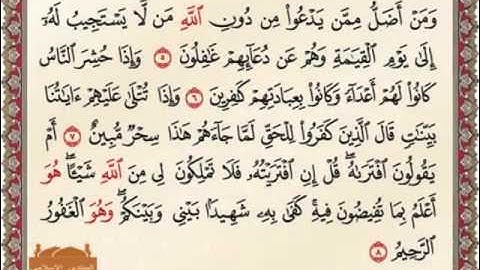 وَمَنْ أَضَلُّ مِمَّن يَدْعُوا۟ مِن دُونِ ٱللَّهِ مَن لَّا يَسْتَجِيبُ لَهُۥٓ
إِلَىٰ يَوْمِ ٱلْقِيَـٰمَةِ وَهُمْ عَن دُعَآئِهِمْ غَـٰفِلُونَ ٥ وَإِذَا حُشِرَ ٱلنَّاسُ
كَانُوا۟ لَهُمْ أَعْدَآءً وَكَانُوا۟ بِعِبَادَتِهِمْ كَـٰفِرِينَ ٦ وَإِذَا تُتْلَىٰ عَلَيْهِمْ ءَايَـٰتُنَا
بَيِّنَـٰتٍ قَالَ ٱلَّذِينَ كَفَرُوا۟ لِلْحَقِّ لَمَّا جَآءَهُمْ هَـٰذَا سِحْرٌ مُّبِينٌ ٧ أَمْ
يَقُولُونَ ٱفْتَرَىٰهُ ۖ قُلْ إِنِ ٱفْتَرَيْتُهُۥ فَلَا تَمْلِكُونَ لِى مِنَ ٱللَّهِ شَيْـًٔا ۖ هُوَ
أَعْلَمُ بِمَا تُفِيضُونَ فِيهِ ۖ كَفَىٰ بِهِۦ شَهِيدًۢا بَيْنِى وَبَيْنَكُمْ ۖ وَهُوَ ٱلْغَفُورُ
ٱلرَّحِيمُ ٨